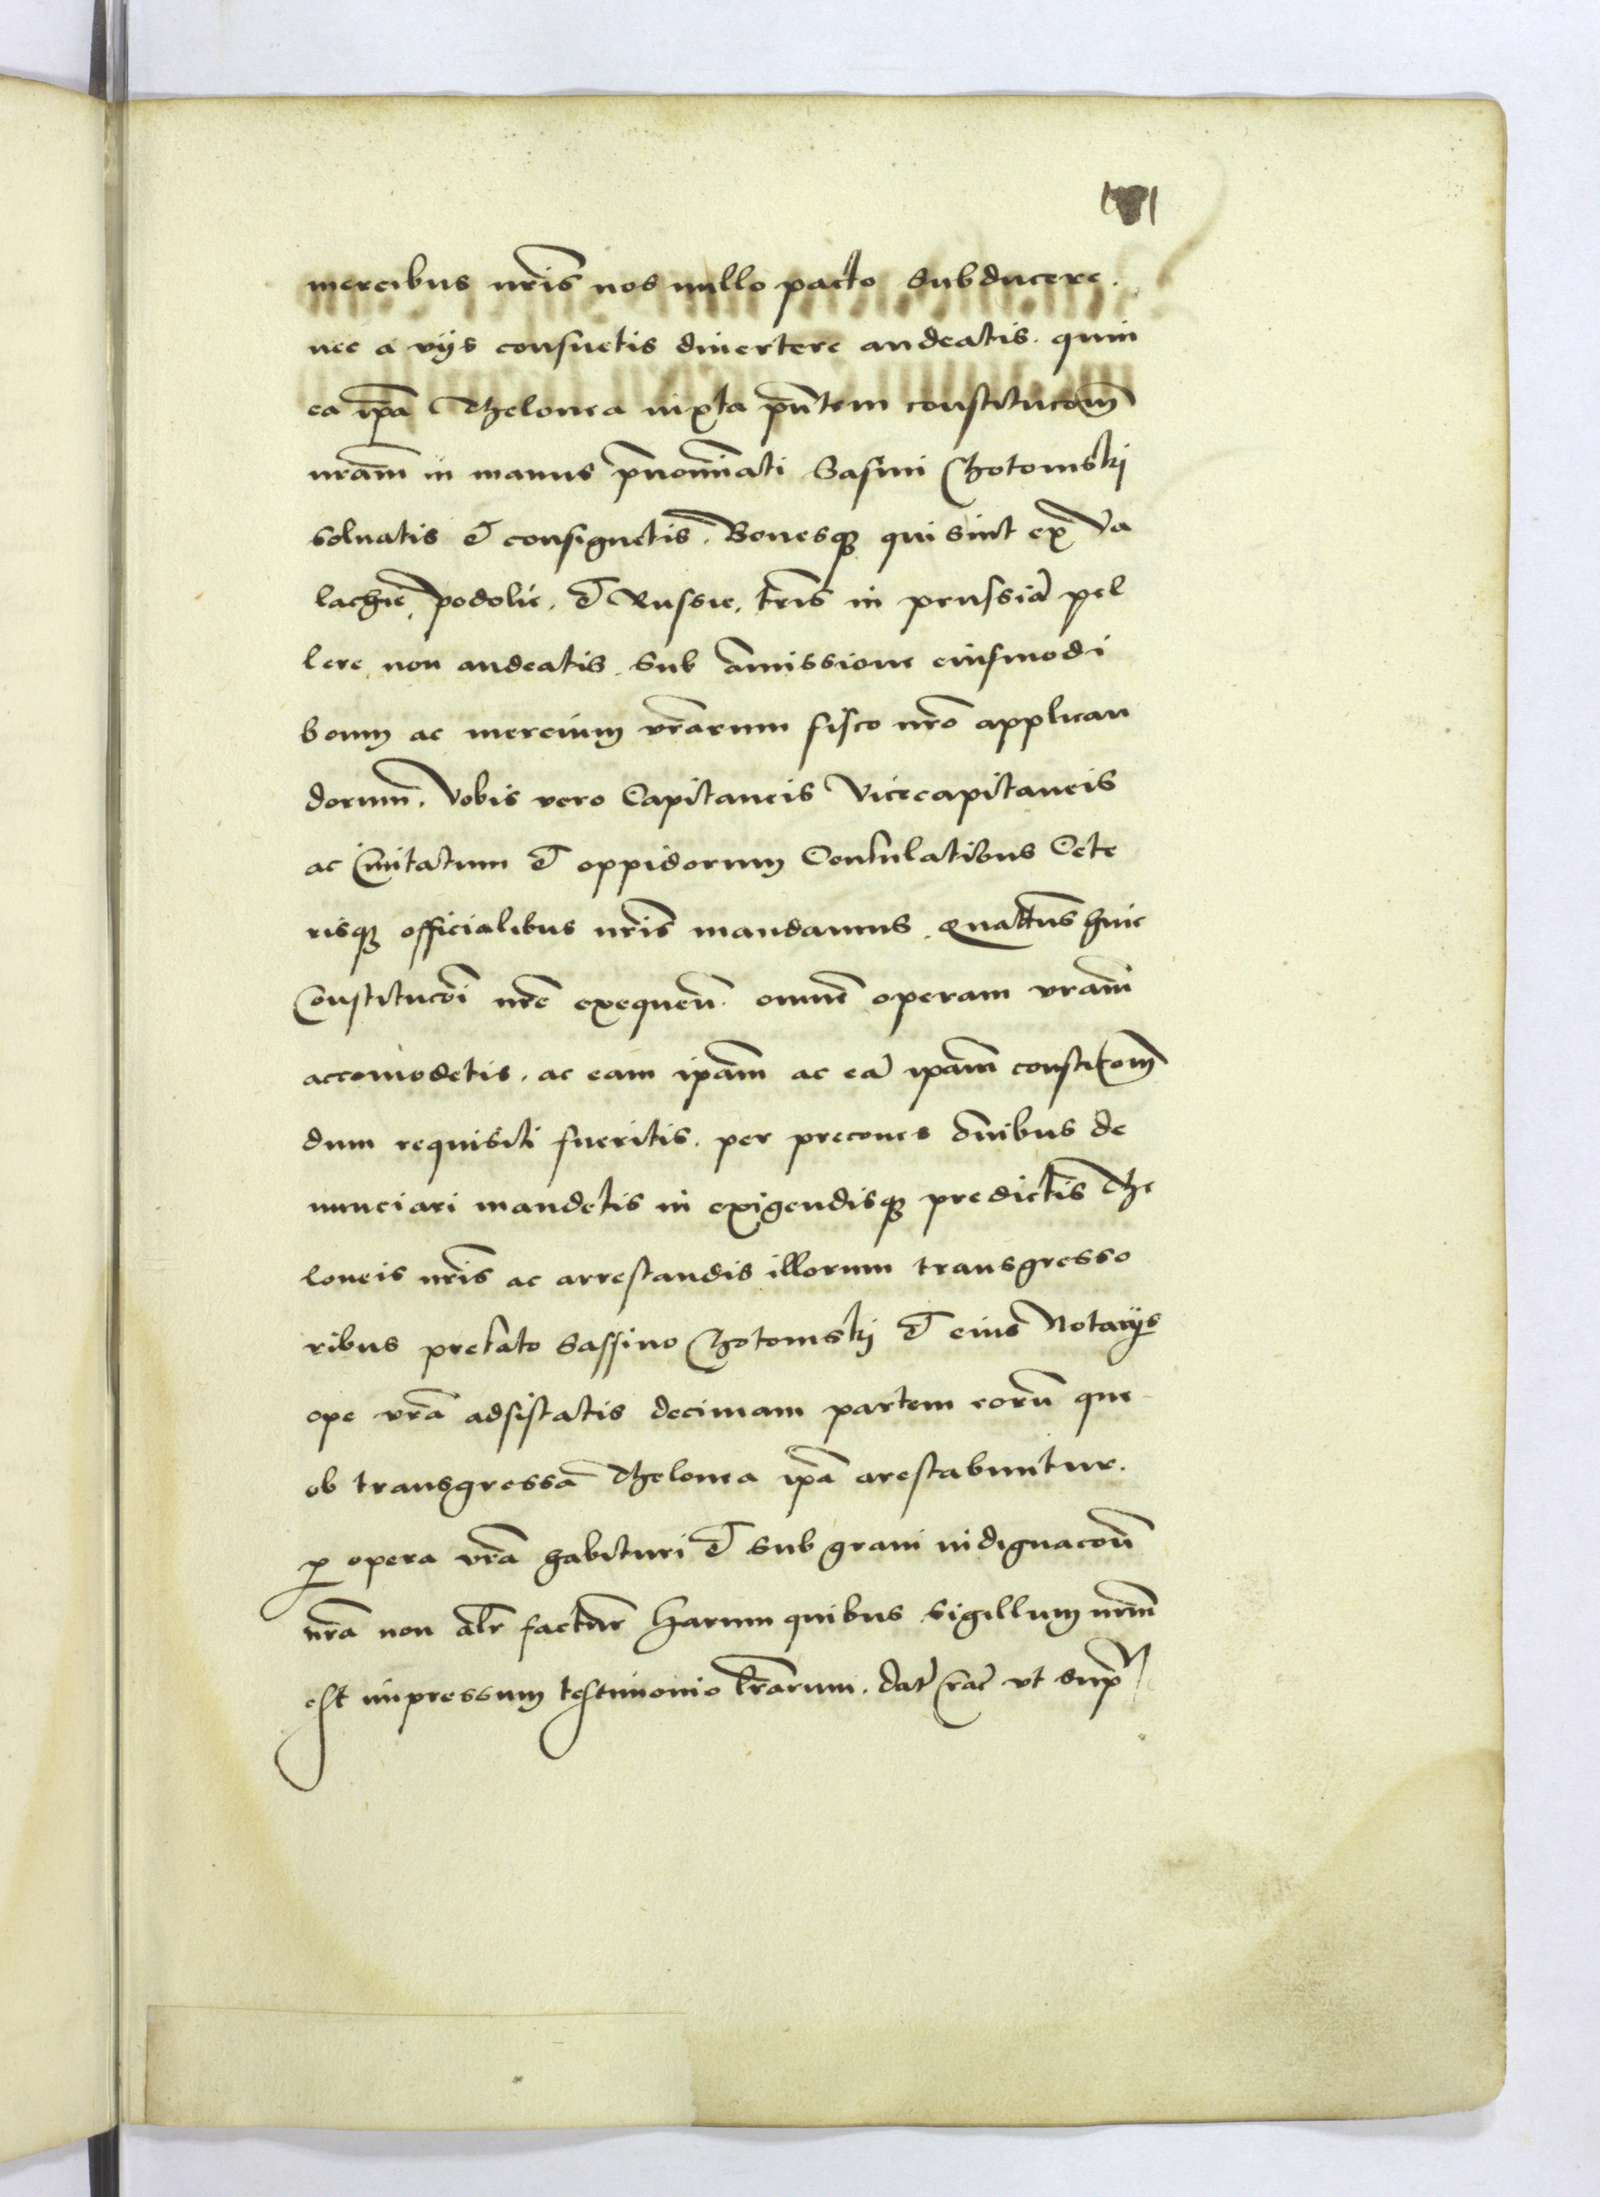 mercibus nr̃is nos nullo pacto subducere.
nec a vijs consuetis diuertere audeatis. quin
ea ip̃a thelonea iuxta pñtem constitucom̃
nrãm in manus p̃nomĩati Sasini Chotomskj
soluatis et consignetis. Bouesqȝ qui sint ex Va
lachie, podolie. et Russie. tr̃is in prussiã pel
lere non audeatis. sub amissione eiusmodi
boum ac mercium vr̃arum fisco nr̃o applican
dorum. Vobis vero Capitaneis Vicecapitaneis
ac Ciuitatum et oppidorum Consulatibus Cete
risqȝ officialibus nr̃is mandamus. Quatt̃us huic
Constitucõi nr̃e exequeñ. omnẽ operam vrãm
accomodetis. ac eam ip̃am ac eã ip̃am constitom̃
dum requisiti fueritis. per precones õnibus de
nunciari mandetis in exigendisqȝ predictis the
loneis nr̃is ac arrestandis illorum transgresso
ribus prefato Sassino Chotomskj et eius Notarijs
ope vr̃a adsistatis decimam partem eorũ que
ob transgressã thelonea ip̃a arestabuntur.
ꝓ opera vr̃a habituri et sub graui indignacoñ
nr̃a non alr̃ factur̃ Harum quibus sigillum nrm̃
est impressum testimonio lr̃arum. dat̃ Crac̃ vt sup̃